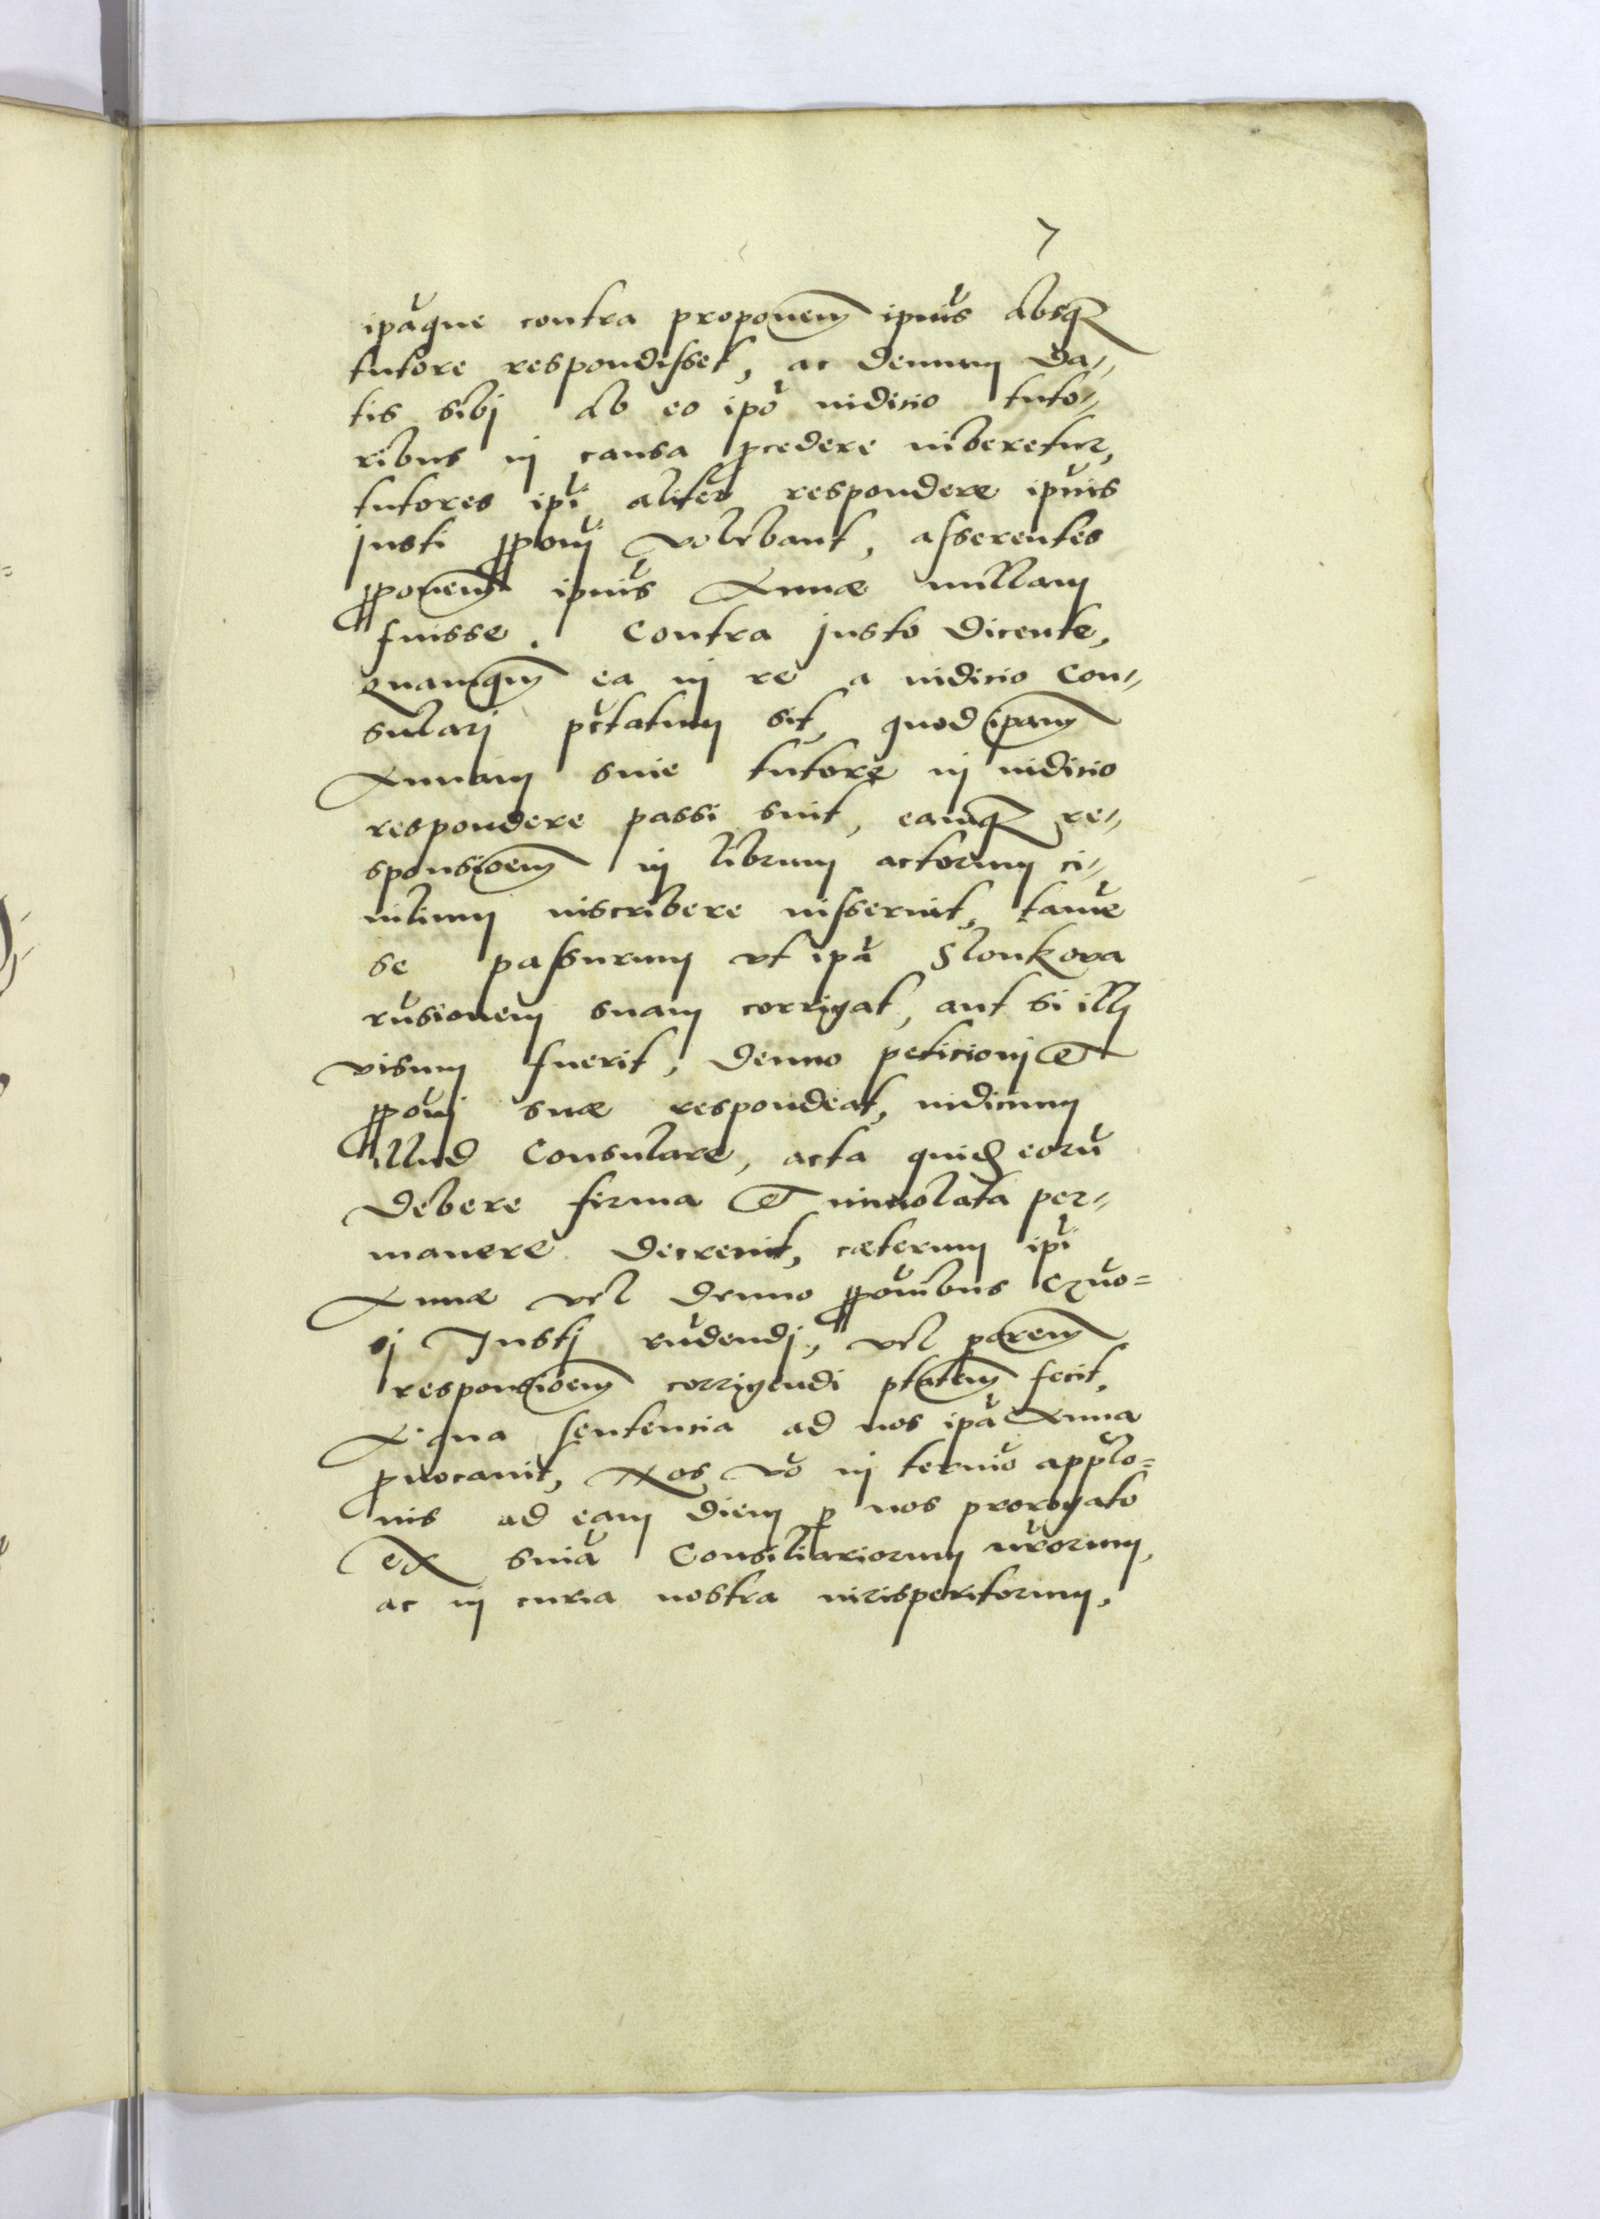 7
ipāque contra proponem ipius absq
tutore respondisset, ac demum da-
tis sibj ab eo ipo iudicio tuto-
ribus in causa pcedere iuberetur,
tutores ipi aliter respondere ipius
justi pponj volebant, asserentes
pponem ipius Annæ nullam
fuisse. Contra justo dicente,
quamqm ea in re a iudicio Con-
sularj pctatum sit, quod ipam
Annam sine tutore in iudicio
respondere passi sint, eamq re-
sponsioem in librum actorum ci-
uilium inscribere iusserint, tame
se passurum vt ipa Slonkova
rusionem suam corrigat, aut si illj
visum fuerit, denuo peticionj et
pponj suæ respondeat, iudicium
illud Consulare, acta quid eorū
debere firma et inuiolata per-
manere decreuit, cæterum ipi
Annæ vel denuo pponibus
Justj rudendj, vel porem
responsioem corrigendi ptatem fecit,
A qua sentencia ad nos ipa Anna
puocauit, Nos vo in termio applo=
nis ad eam diem p nos prorogato
ex snia Consiliariorum nrorum,
ac in curia nostra iurisperitorum,